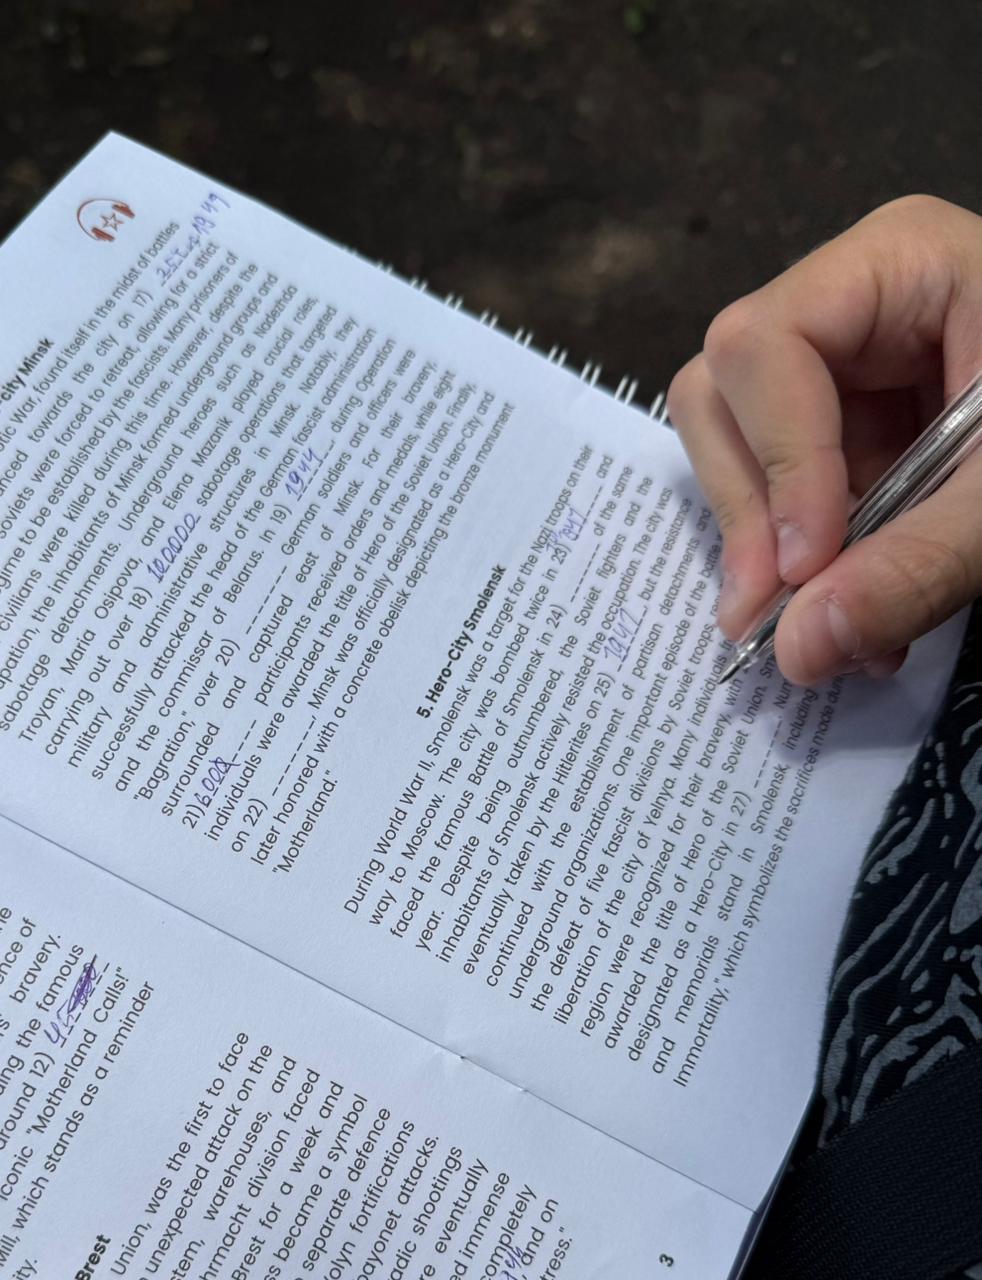 city Minsk
War, found itself in the midst of battles
towards the city on 17)
soviets were forced to retreat, allowing for a strict
to be established by the fascists. Many prisoners of
civilians were killed during this time. However, despite the
the inhabitants of Minsk formed underground groups and
sabotage detachments. Underground heroes such as Nadezhda
Troyan, Maria Osipova, and Elena Mazanik played crucial roles,
carrying out over 18) 10000 sabotage operations that targeted
military and administrative structures in Minsk. Notably, they
successfully attacked the head of the German fascist administration
and the commissar of Belarus. In 19) 1944 during Operation
"Bagration," over 20) ______ German soldiers and officers were
surrounded and captured east of Minsk. For their bravery,
21) participants received orders and medals, while eight
individuals were awarded the title of Hero of the Soviet Union. Finally,
on 22) ______, Minsk was officially designated as a Hero-City and
later honored with a concrete obelisk depicting the bronze monument
"Motherland."
5. Hero-City Smolensk
During World War II, Smolensk was a target for the Nazi troops on their
way to Moscow. The city was bombed twice in 23) and
faced the famous Battle of Smolensk in 24) ______ of the same
year. Despite being outnumbered, the Soviet fighters and the
inhabitants of Smolensk actively resisted the occupation. The city was
eventually taken by the Hitlerites on 25) , but the resistance
continued with the establishment of partisan detachments and
underground organizations. One important episode of the battle
the defeat of five fascist divisions by Soviet troops
liberation of the city of Yelnya. Many individuals
region were recognized for their bravery, with
awarded the title of Hero of the Soviet Union.
designated as a Hero-City in 27) ______.
and memorials stand in Smolensk, including
Immortality," which symbolizes the sacrifices made
of
bravery.
the famous
around 12)
iconic "Motherland Calls!"
Mill, which stands as a reminder
Brest
Union, was the first to face
unexpected attack on the
warehouses, and
division faced
Brest for a week and
became a symbol
separate defence
fortifications
attacks.
shootings
eventually
immense
completely
and on
3